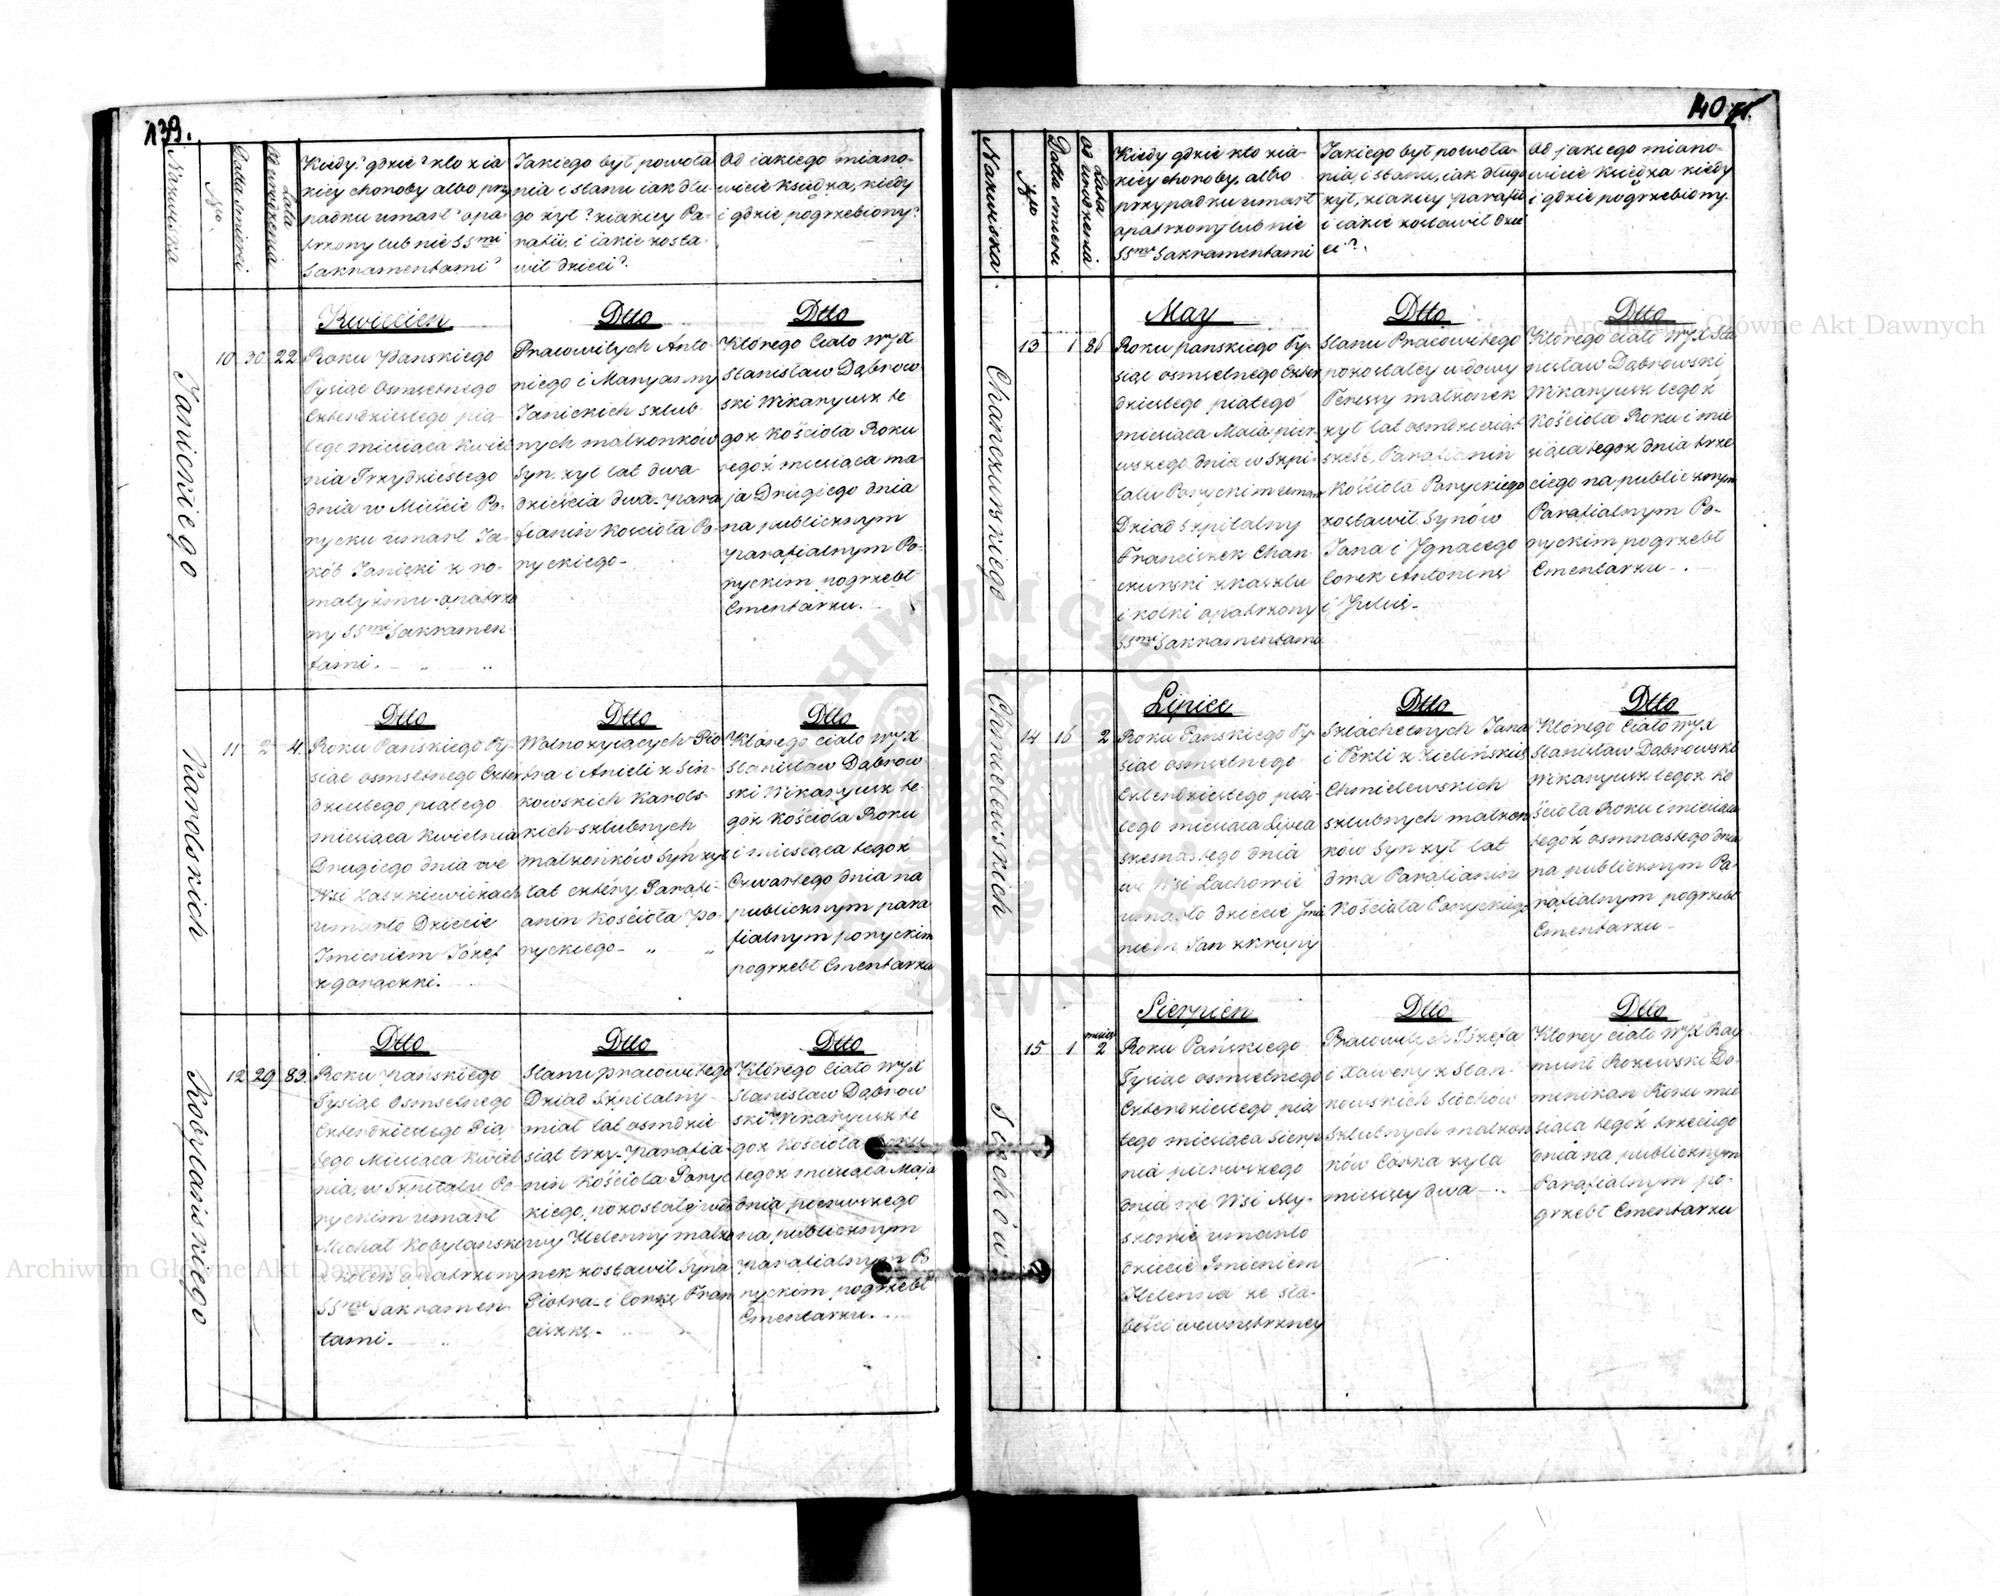 139.
Nazwiska
Nro.
Datta śmierci
Lata
od urodzenia
Kiedy? gdzie? kto z ia
kiey choroby albo przy
padku umarł? opa
trzony lub nie SSmi
Sakramentami?
Jakiego był powoła
nia i stanu iak dłu
go żył? z iakiey Pa-
rafii, i iakie zosta-
wił dzieci?
Od iakiego miano-
wicie Księdza, kiedy
i gdzie pogrzebiony?
Janickiego
10
30
22
Kwiecien
Roku Panskiego
Tysiąc Osmsetnego
Czterdziestego pią-
tego miesiąca Kwiet
nia Trzydziestego
dnia w Mieście Po-
rycku umarł Ja-
kób Janicki z ro-
matyzmu opatrzo
ny SSmi Sakramen-
tami.
Dtto
Pracowitych Anto-
niego i Maryanny
Janickich szlub-
nych małżonków
Syn, żył lat dwa
dzieścia dwa. para
fianin Kościoła Po-
ryckiego-
Dtto
Którego Ciało WJX
Stanisław Dąbrow
ski Wikaryusz te-
goż Kościoła Roku
tegoż miesiąca ma-
ja Drugiego dnia
na publicznym
parafialnym Po-
ryckim pogrzebł
Cmentarzu.
Karolskich
11
2
4
Dtto
Roku Pańskiego Ty-
siąc osmsetnego Czter
dziestego piątego
miesiąca Kwietnia
Drugiego dnia we
Wsi Łaszkiewiczach
umarło Dziecie
Imieniem Józef
z gorączki.
Dtto
Wolnożyiących Pio
tra i Anieli z Sin-
kowskich Karols-
kich szlubnych
małżonków Syn żył
lat cztéry Parafi-
anin Kościoła Po-
ryckiego-
Dtto
Którego ciało WJX
Stanisław Dąbrow
ski Wikaryusz te-
goż Kościoła Roku
i miesiąca tegoż
Czwartego dnia na
publicznym para
fialnym poryckim
pogrzebł Cmentarzu
Kobylańskiego
12
29
83.
Dtto
Roku Pańskiego
Tysiąc Osmsetnego
Czterdziestego Pią
tego Miesiąca Kwiet
nia, w Szpitalu Po-
ryckim umarł
Michał Kobylanski
z kolek opatrzony
SSmi Sakramen-
tami.
Dtto
Stanu pracowitego
Dziad Szpitalny
miał lat osmdzie
siąt trzy- Parafia-
nin Kościoła Poryc
kiego, pozostałej wdo
wy Helenny małżo
nek zostawił Syna
Piotra- i Corkę Fran
ciszkę.
Dtto
Którego Ciało WJX
Stanisław Dąbrow
ski Wikaryusz te
goż Kościoła Roku
tegoż miesiąca Maja
dnia pierwszego
na publicznym
parafialnym Po
ryckim pogrzebł
Cmentarzu.
140
Nazwiska
Nro
Datta śmierci
Lata
od urodzenia
Kiedy gdzie kto z ia-
kiey choroby, albo
przypadku umarł
opatrzony lub nie
SSmi Sakramentami
Jakiego był powoła-
nia, i stanu, iak długo
żył, z iakiey parafii
i iakie zostawił dzie
ci?
Od jakiego miano-
wicie Księdza kiedy
i gdzie pogrzebiony.
Chanczurskiego
13
1
86
May
Roku panskiego Ty-
siąc osmsetnego Czter
dziestego piątego
miesiąca Maia pier
wszego dnia w Szpi-
talu Poryckim umarł
Dziad Szpitalny
Franciszek Chan
czurski z kaszlu
i kolki opatrzony
SSmi Sakramentami
Dtto
Stanu Pracowitego
pozostałey wdowy
Teressy małżonek
żył lat osmdziesiąt
sześć, Parafianin
Kościoła Poryckiego
zostawił Synów
Jana i Ignacego
Corek Antoninę
i Julię-
Dtto
Którego ciało WJX Sta
nisław Dąbrowski
Wikaryusz tegoż
Kościoła Roku i mie
siąca tegoż dnia trze
ciego na publicznym
Parafialnym Po-
ryckim pogrzebł
Cmentarzu-
Chmielewskich
14
16
2
Lipiec
Roku Pańskiego Ty-
siąc osmsetnego
Czterdziestego pią
tego miesiąca Lipca
szesnastego dnia
we Wsi Lachowie
umarło dziecie Imie
niem Jan z krupy
Dtto
Szlachetnych Jana
i Tekli z Zielińskich
Chmielewskich
szlubnych małżon
ków Syn żył lat
dwa Parafianin
Kościoła Poryckiego
Dtto
Którego Ciało WJX
Stanisław Dąbrowski
Wikaryusz tegoż Ko
ścioła Roku i miesiąca
tegoż osmnastego dnia
na publicznym Pa-
rafialnym pogrzebł
Cmentarzu-
Sochów
15
1
miesięc
2
Sierpien
Roku Pańskiego
Tysiąc osmsetnego
Czterdziestego pią
tego miesiąca Sierp
nia pierwszego
dnia we Wsi My-
szowie umarło
dziecie Imieniem
Helenna ze sła-
bości wewnętrzney
Dtto
Pracowitych Józefa
i Xawery z Stan-
kowskich Sochów
Szlubnych małżon
ków Córka żyła
miesięcy dwa-
Dtto
Którey ciało WJX Ray
munt Rozewski Do-
minikan Roku mie
siąca tegoż trzeciego
dnia na publicznym
Parafialnym po-
grzebł Cmentarzu
Archiwum Główne Akt Dawnych
Archiwum Główne Akt Dawnych